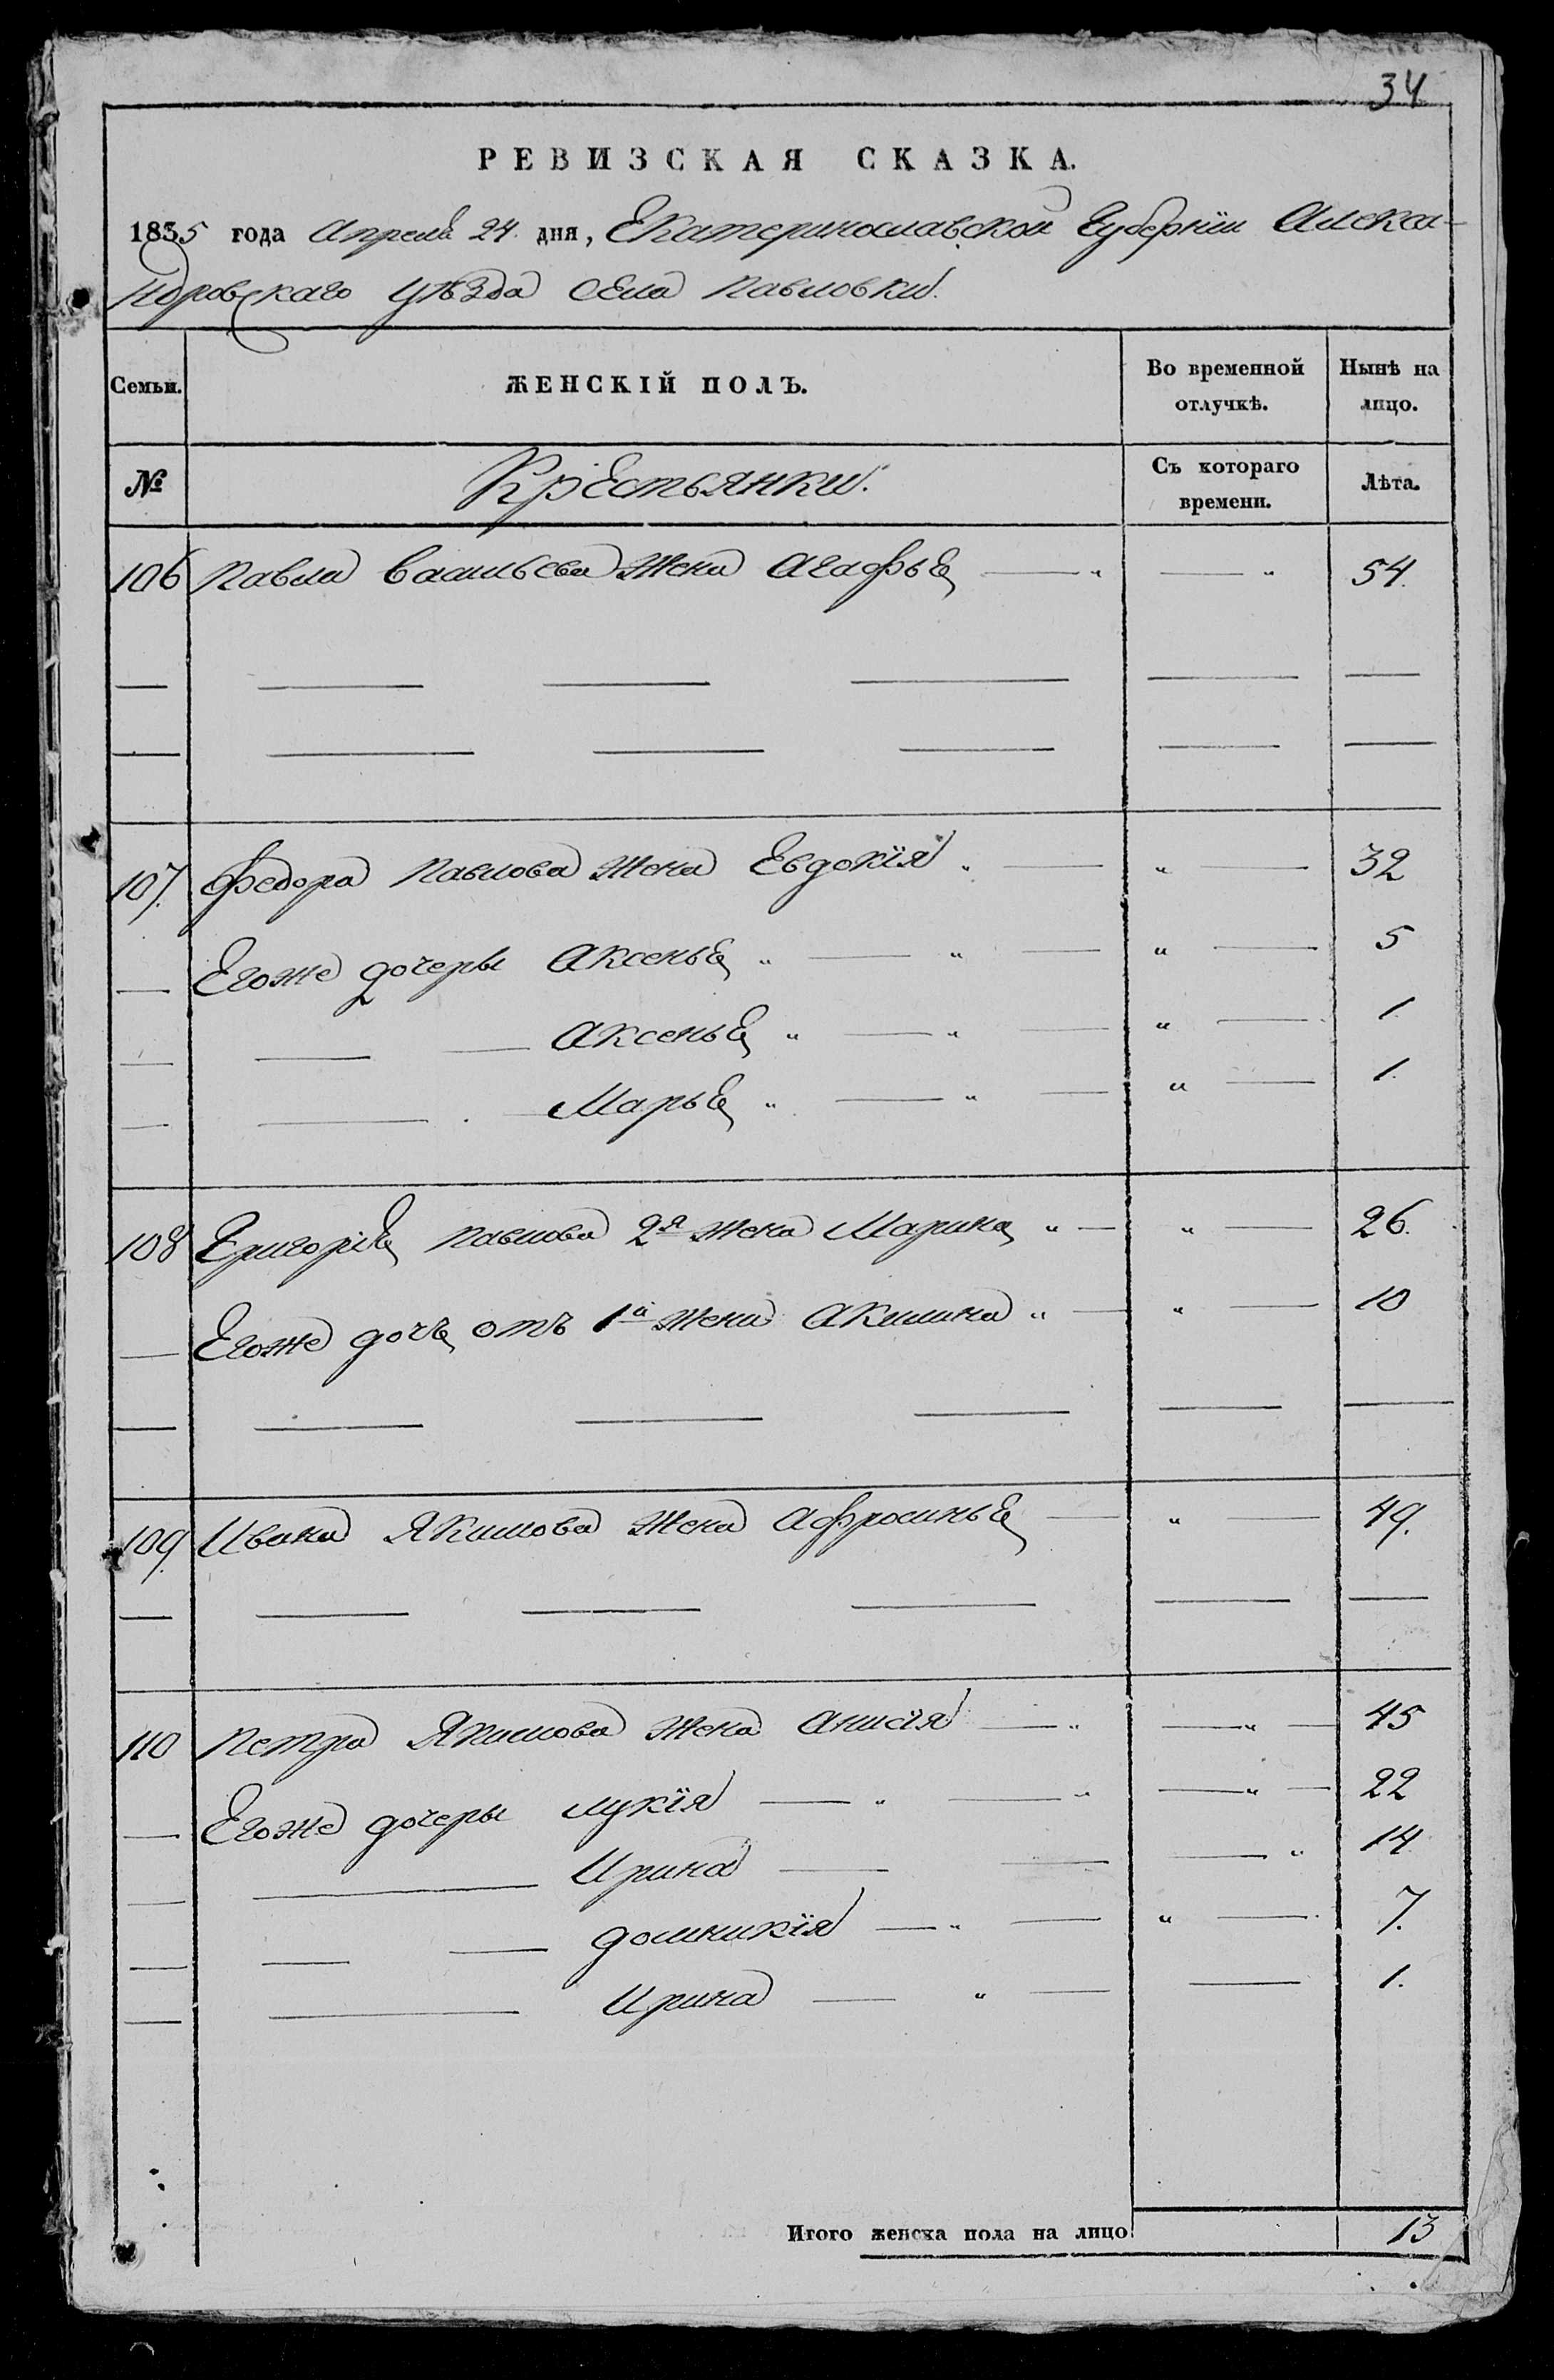 34
РЕВИЗСКАЯ СКАЗКА.
1835 года Апреля 24 дня, Екатеринославской Губернїи Алекса-
ндровскаго уѣзда села Павловки.
Семьи. ЖЕНСКІЙ ПОЛЪ. Во временной отлучкѣ. Нынѣ на лицо.
№ Крестьянки. Съ котораго времени. Лѣта.
106 Павла Васильева жена Агафья — " — " 54.
107. Федора Павлова жена Евдокїя " — " — 32
Егоже дочеры Аксенья " — " — " — 5
Аксенья " — " — " — 1.
Марья " — " — " — 1.
108 Григорія Павлова 2я жена Марина " — " — 26.
Егоже дочь отъ 1й жены Акилина " — " — 10
109. Ивана Якимова жена Афросинья — " — 49.
110 Петра Якимова жена Анисїя — " — " — 45
Егоже дочеры Лукїя — " — " — " — 22
Ирина — — — " 14
Домникїя — " — " — 7.
Ирина — " — — 1.
Итого женска пола на лицо 13